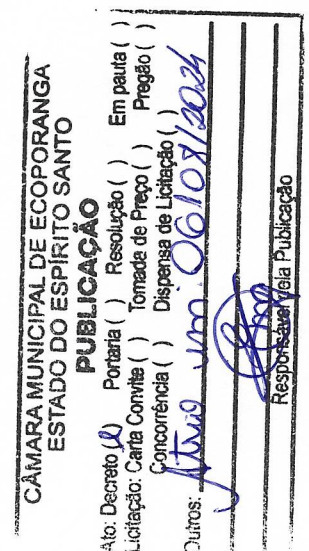 CÂMARA MUNICIPAL DE ECOPORANGA
ESTADO DO ESPÍRITO SANTO
PUBLICAÇÃO
Ato: Decreto ( ) Portaria ( ) Resolução ( ) Em pauta ( )
Licitação: Carta Convite ( ) Tomada de Preço ( ) Pregão ( )
Concorrência ( ) Dispensa de Licitação ( )
Outros: Atrio em: 06/08/2024
Responsável pela Publicação